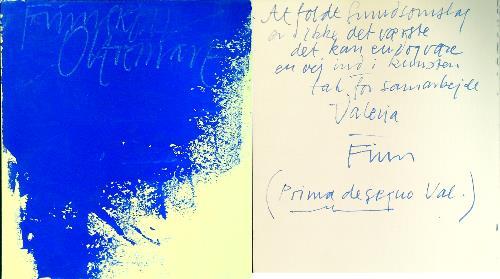 At folde Grundsomslag
er ikke det værste
det kan endog være
en vej ind i kunsten
tak for samarbejde
Valeria
Finn
(Prima desegno Val.)